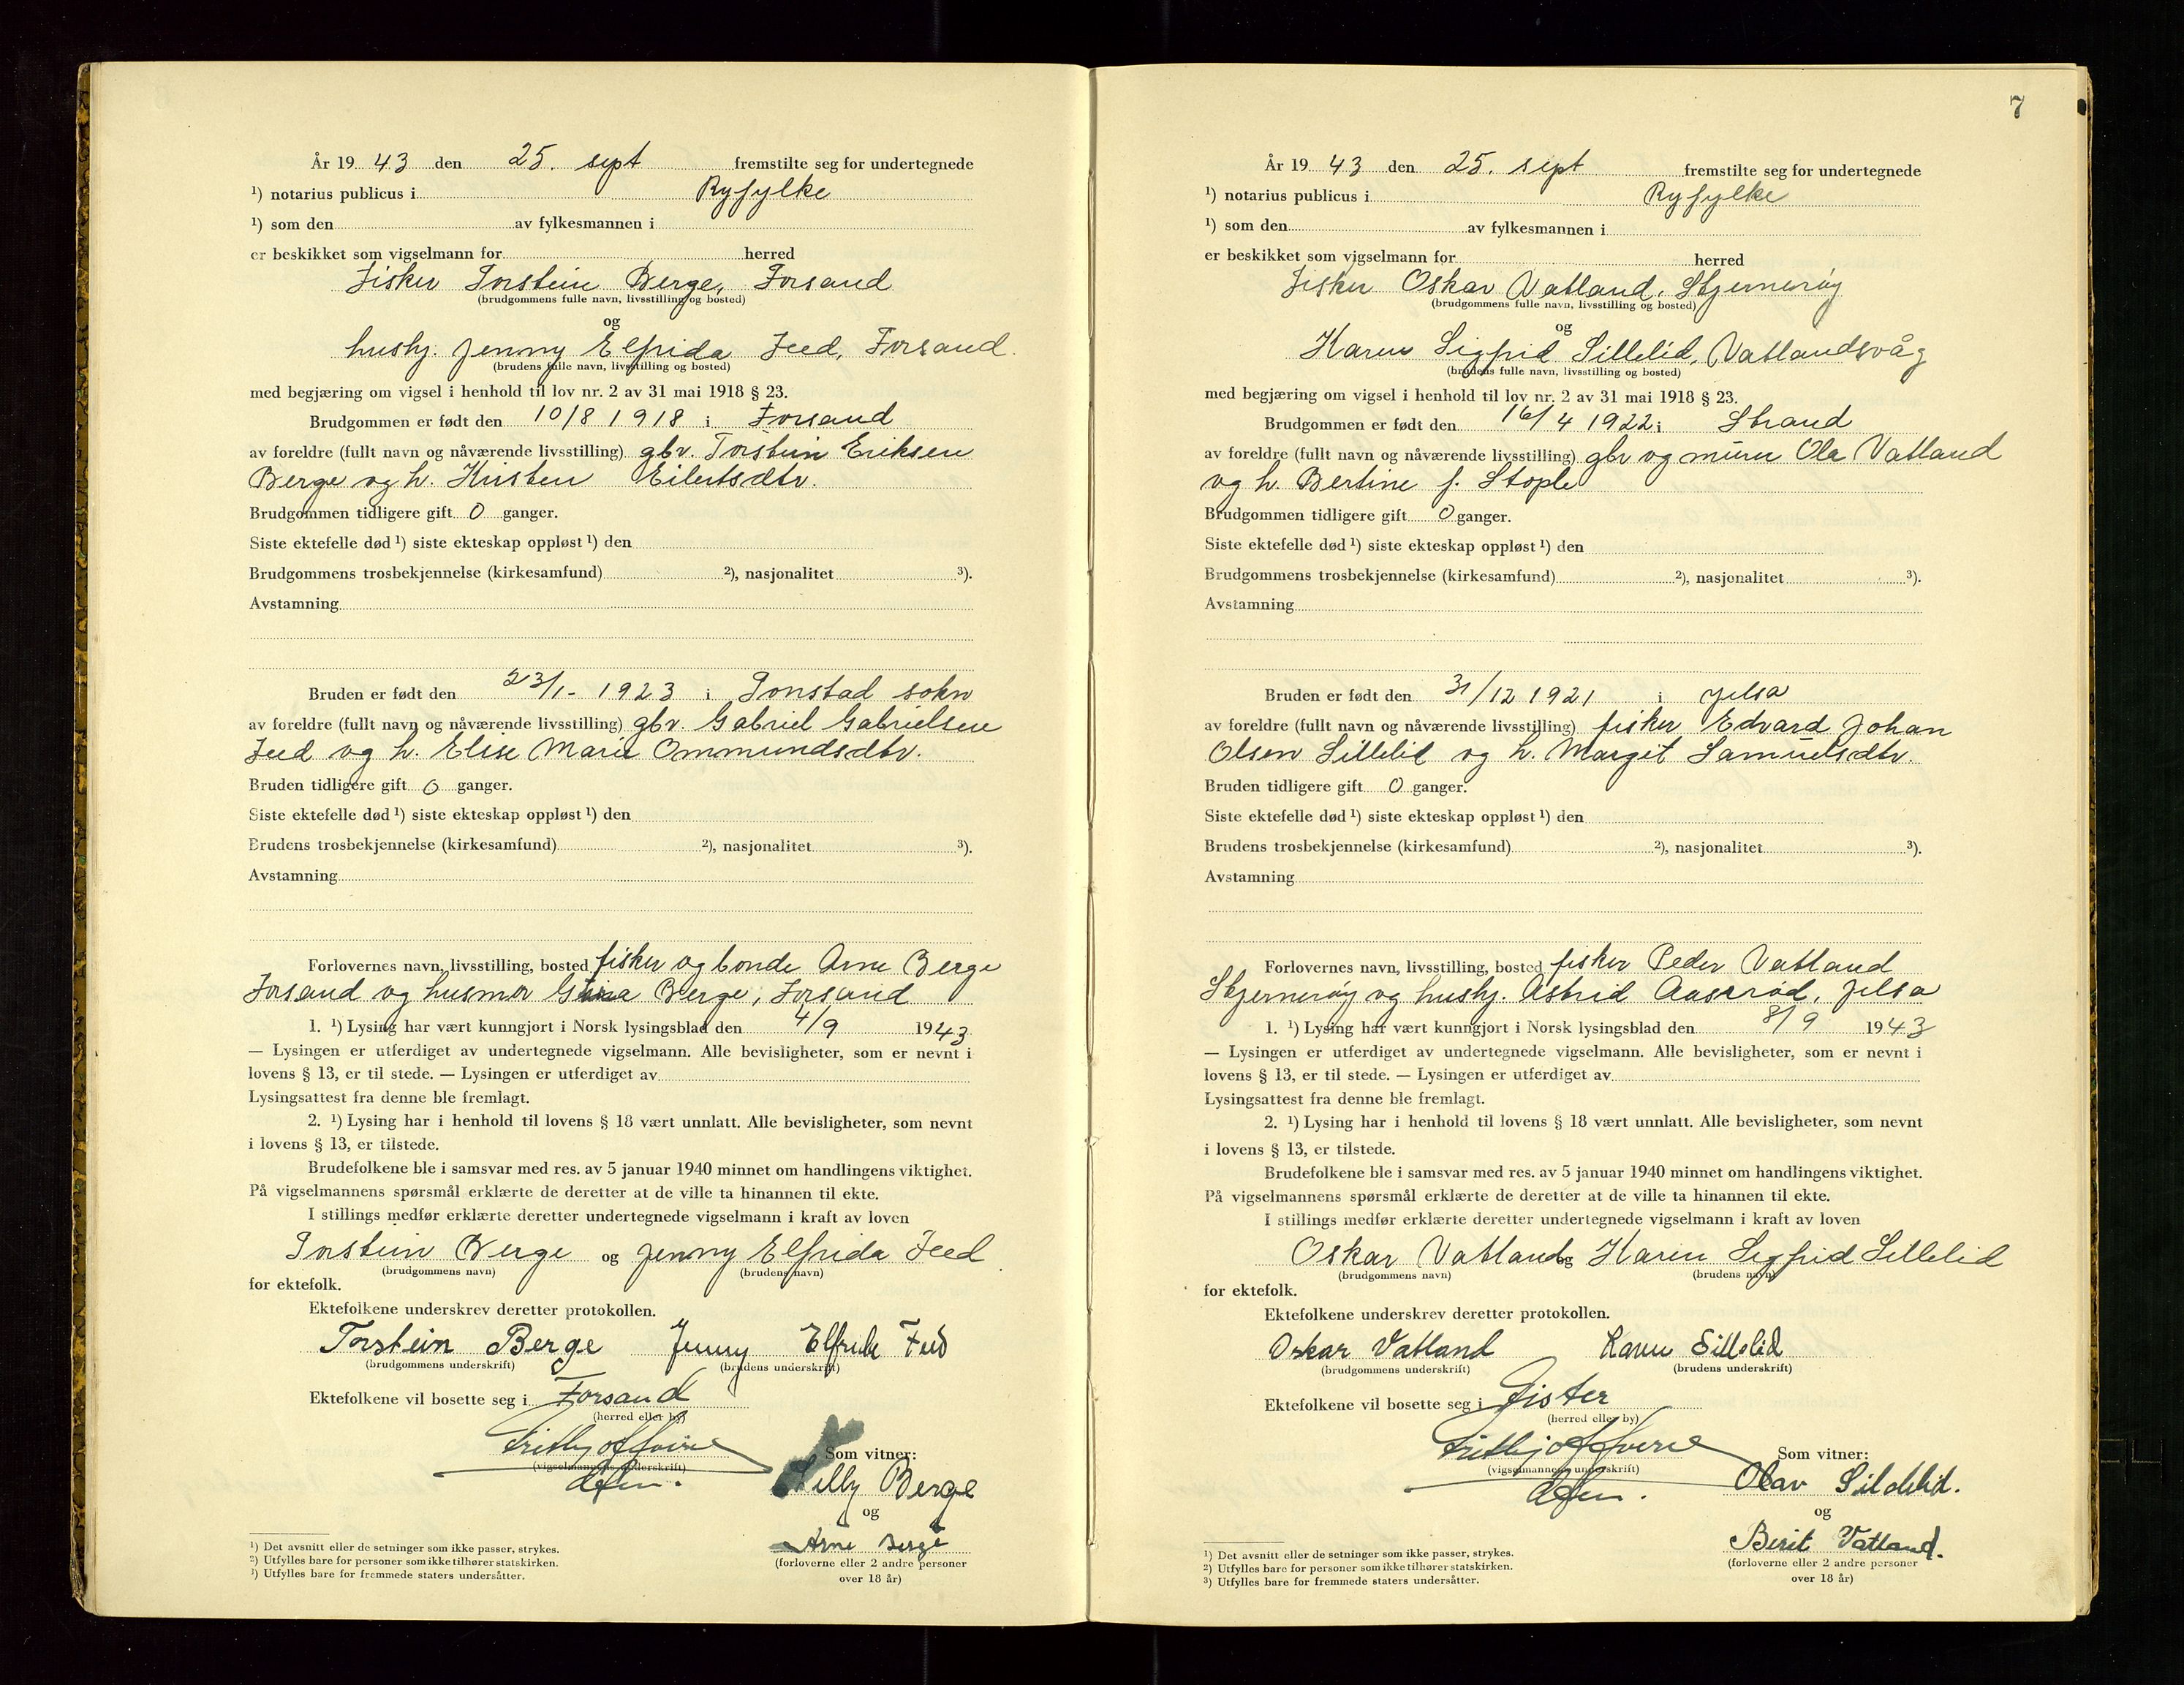 År 1943 den 25. sept fremstilte seg for undertegnede
¹) notarius publicus i Ryfylke
¹) som den av fylkesmannen i
er beskikket som vigselmann for herred
Fisker Torstein Berge, Forsand
(brudgommens fulle navn, livsstilling og bosted)
og
hushj. Jenny Elfrida Feed, Forsand.
(brudens fulle navn, livsstilling og bosted)
med begjæring om vigsel i henhold til lov nr. 2 av 31 mai 1918 § 23.
Brudgommen er født den 10/8 1918 i Forsand
av foreldre (fullt navn og nåværende livsstilling) gbr. Torstein Eriksen
Berge og h. Kristen Eilertsdtr.
Brudgommen tidligere gift 0 ganger.
Siste ektefelle død ¹) siste ekteskap oppløst ¹) den
Brudgommens trosbekjennelse (kirkesamfund) ²), nasjonalitet ³).
Avstamning
Bruden er født den 23/1- 1923 i Tonstad sokn
av foreldre (fullt navn og nåværende livsstilling) gbr. Gabriel Gabrielsen
Feed og h. Elise Marie Ommundsdtr.
Bruden tidligere gift 0 ganger.
Siste ektefelle død ¹) siste ekteskap oppløst ¹) den
Brudens trosbekjennelse (kirkesamfund) ²), nasjonalitet ³).
Avstamning
Forlovernes navn, livsstilling, bosted fisker og bonde Arne Berge
Forsand og husmor Berge, Forsand
1. ¹) Lysing har vært kunngjort i Norsk lysingsblad den 4/9 1943
— Lysingen er utferdiget av undertegnede vigselmann. Alle bevisligheter, som er nevnt i
lovens § 13, er til stede. — Lysingen er utferdiget av
Lysingsattest fra denne ble fremlagt.
2. ¹) Lysing har i henhold til lovens § 18 vært unnlatt. Alle bevisligheter, som nevnt
i lovens § 13, er tilstede.
Brudefolkene ble i samsvar med res. av 5 januar 1940 minnet om handlingens viktighet.
På vigselmannens spørsmål erklærte de deretter at de ville ta hinannen til ekte.
I stillings medfør erklærte deretter undertegnede vigselmann i kraft av loven
Torstein Berge og Jenny Elfrida Feed
(brudgommens navn) (brudens navn)
for ektefolk.
Ektefolkene underskrev deretter protokollen.
Torstein Berge Jenny Elfride Feed
(brudgommens underskrift) (brudens underskrift)
Ektefolkene vil bosette seg i Forsand
(herred eller by)
(vigselmannens underskrift)
Som vitner:
Lilly Berge
og
Arne Berge
(forloverne eller 2 andre personer
over 18 år)
¹) Det avsnitt eller de setninger som ikke passer, strykes.
²) Utfylles bare for personer som ikke tilhører statskirken.
³) Utfylles bare for fremmede staters undersåtter.
7
År 1943 den 25. sept fremstilte seg for undertegnede
¹) notarius publicus i Ryfylke
¹) som den av fylkesmannen i
er beskikket som vigselmann for herred
Fisker Oskar Vatland, Stjernerøy
(brudgommens fulle navn, livsstilling og bosted)
og
Karen Sigfrid Sillelid, Vatlandsvåg
(brudens fulle navn, livsstilling og bosted)
med begjæring om vigsel i henhold til lov nr. 2 av 31 mai 1918 § 23.
Brudgommen er født den 16/4 1922 i Strand
av foreldre (fullt navn og nåværende livsstilling) gbr og murer Ola Vatland
og h. Bertine f. Stople
Brudgommen tidligere gift 0 ganger.
Siste ektefelle død ¹) siste ekteskap oppløst ¹) den
Brudgommens trosbekjennelse (kirkesamfund) ²), nasjonalitet ³).
Avstamning
Bruden er født den 31/12 1921 i Jelsa
av foreldre (fullt navn og nåværende livsstilling) fisker Edvard Johan
Olsen Sillelid og h. Margit Samuelsdtr.
Bruden tidligere gift 0 ganger.
Siste ektefelle død ¹) siste ekteskap oppløst ¹) den
Brudens trosbekjennelse (kirkesamfund) ²), nasjonalitet ³).
Avstamning
Forlovernes navn, livsstilling, bosted fisker Peder Vatland
Stjernerøy og hushj. Astrid Aaserød, Jelsa
1. ¹) Lysing har vært kunngjort i Norsk lysingsblad den 8/9 1943
— Lysingen er utferdiget av undertegnede vigselmann. Alle bevisligheter, som er nevnt i
lovens § 13, er til stede. — Lysingen er utferdiget av
Lysingsattest fra denne ble fremlagt.
2. ¹) Lysing har i henhold til lovens § 18 vært unnlatt. Alle bevisligheter, som nevnt
i lovens § 13, er tilstede.
Brudefolkene ble i samsvar med res. av 5 januar 1940 minnet om handlingens viktighet.
På vigselmannens spørsmål erklærte de deretter at de ville ta hinannen til ekte.
I stillings medfør erklærte deretter undertegnede vigselmann i kraft av loven
Oskar Vatland og Karen Sigfrid Sillelid
(brudgommens navn) (brudens navn)
for ektefolk.
Ektefolkene underskrev deretter protokollen.
Oskar Vatland Karen Sillelid
(brudgommens underskrift) (brudens underskrift)
Ektefolkene vil bosette seg i Fister
(herred eller by)
(vigselmannens underskrift)
Som vitner:
Olav Sildelid.
og
Berit Vatland.
(forloverne eller 2 andre personer
over 18 år)
¹) Det avsnitt eller de setninger som ikke passer, strykes.
²) Utfylles bare for personer som ikke tilhører statskirken.
³) Utfylles bare for fremmede staters undersåtter.